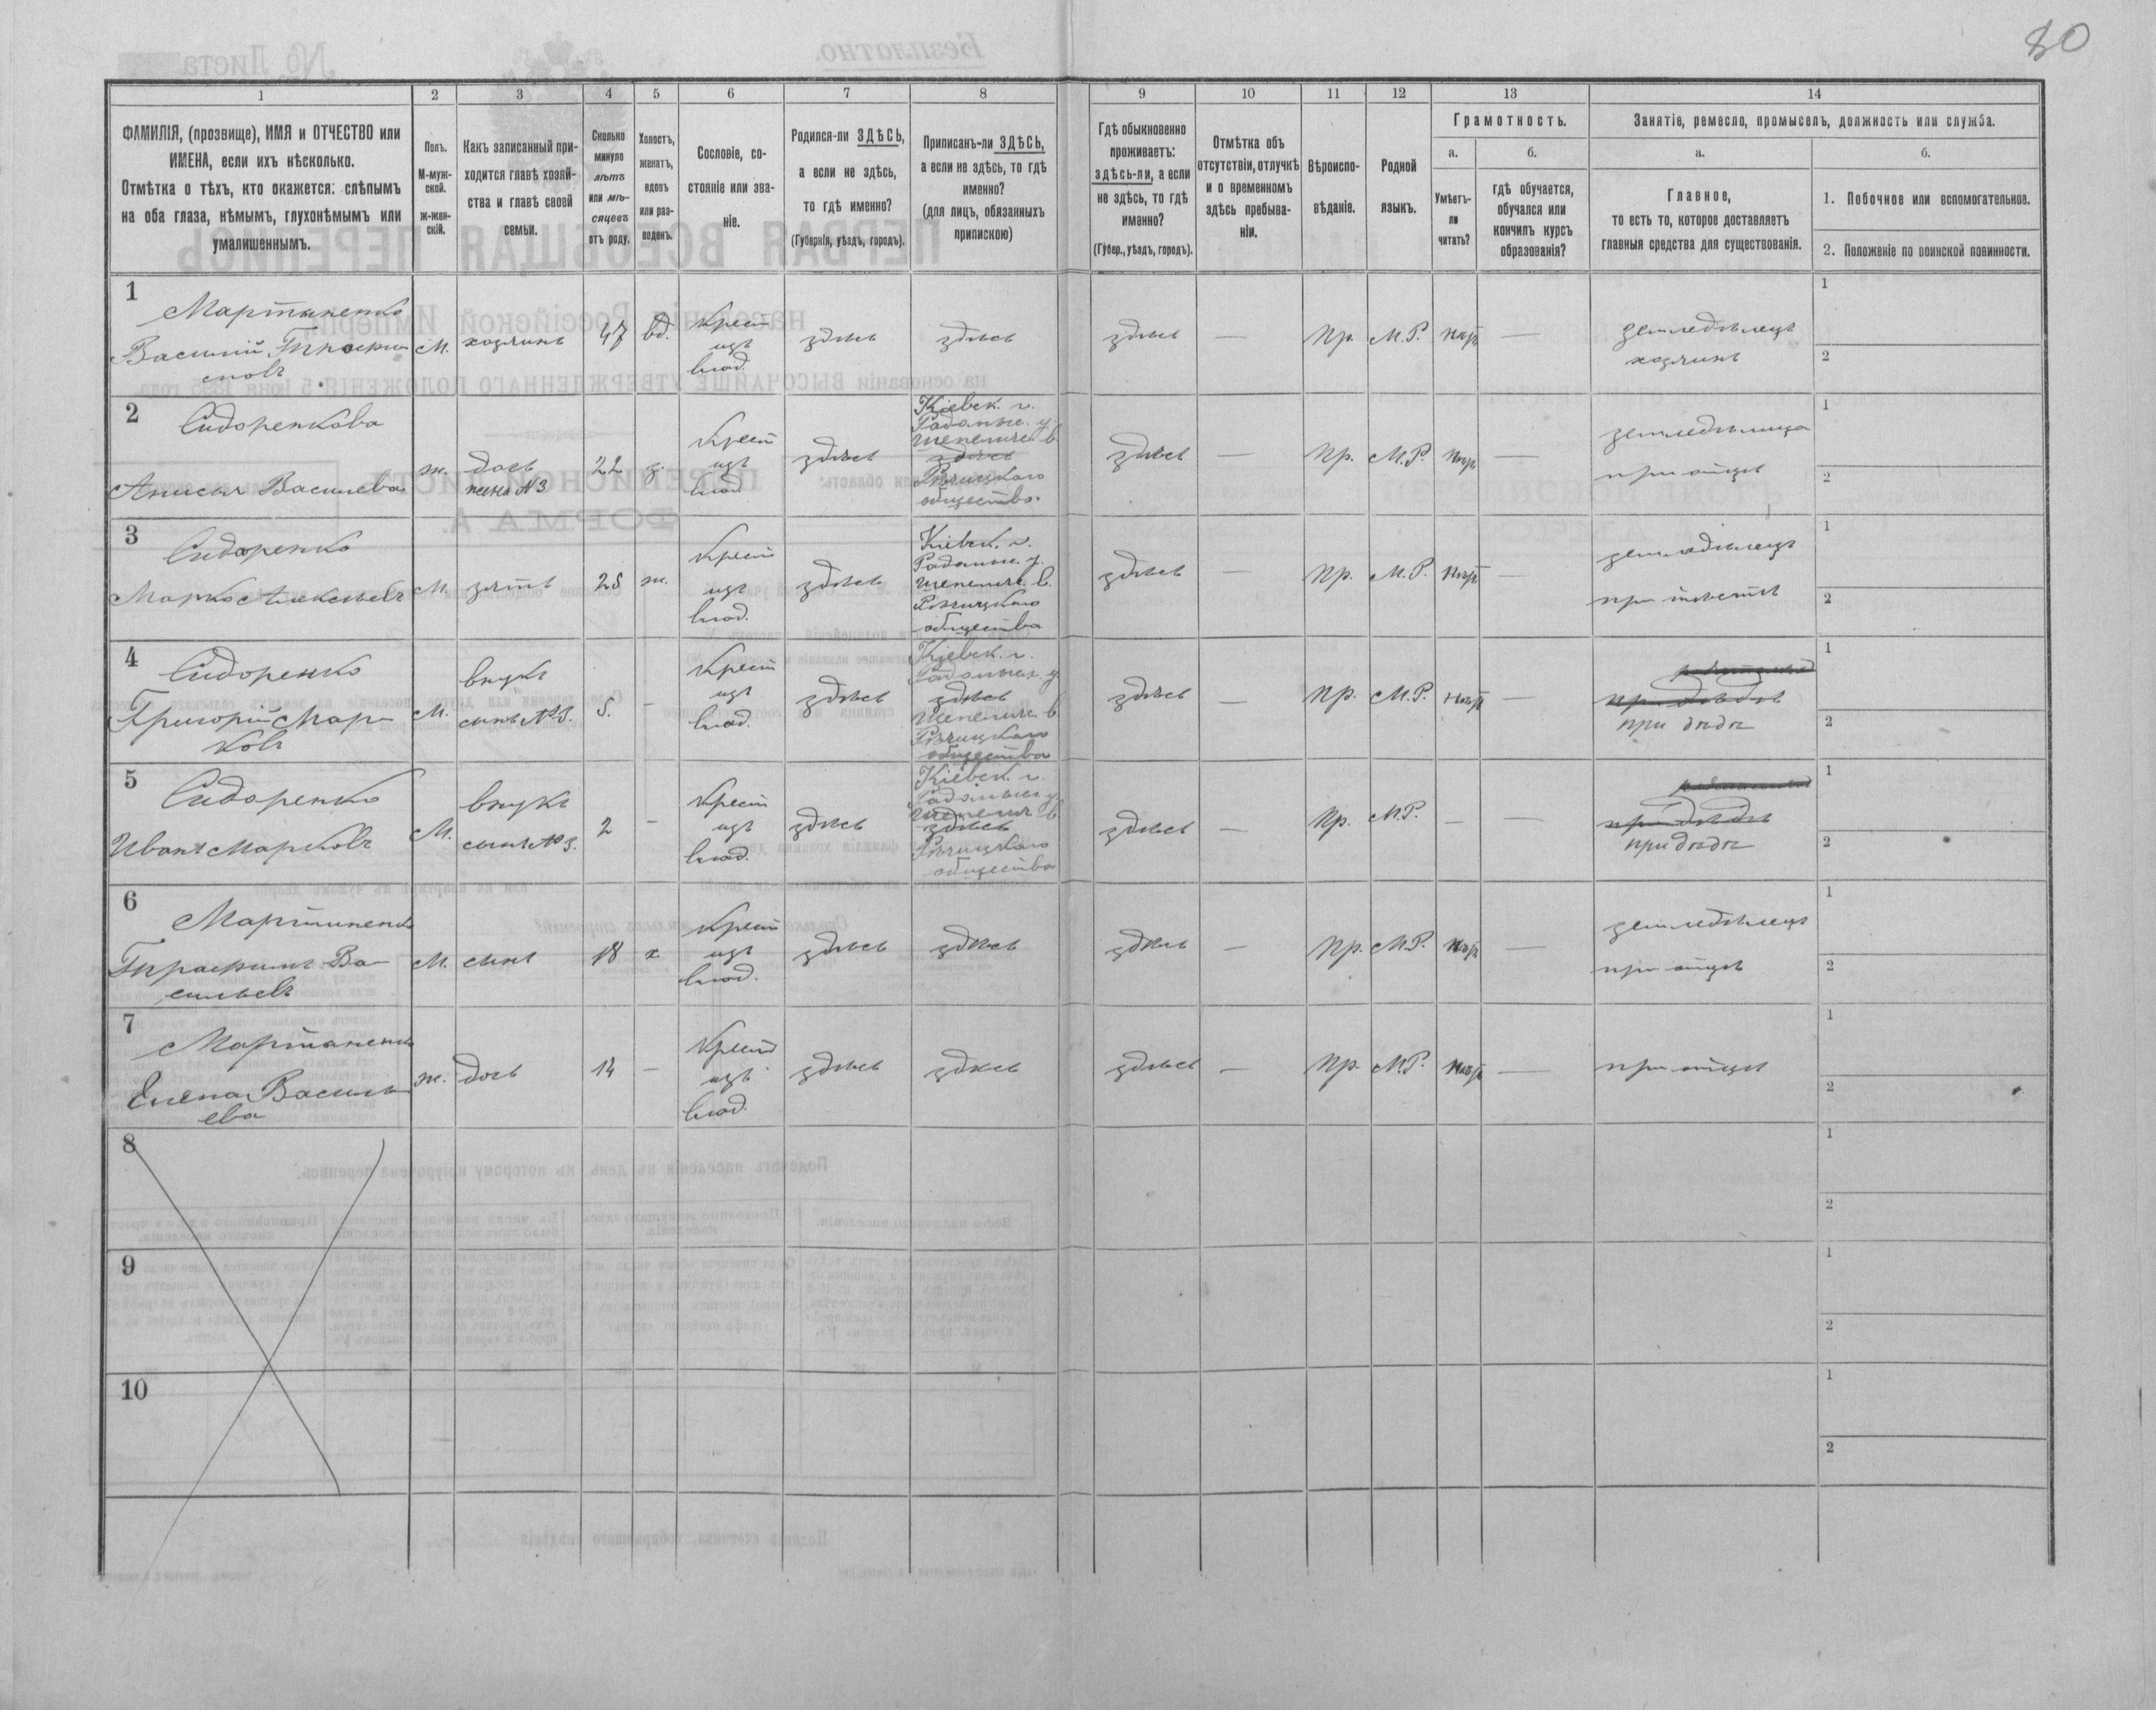 80
1
2
3
4
5
6
7
8
9
10
11
12
13
14
ФАМИЛІЯ, (прозвище), ИМЯ и ОТЧЕСТВО или
ИМЕНА, если ихъ нѣсколько.
Отмѣтка о тѣхъ, кто окажется: слѣпымъ
на оба глаза, нѣмымъ, глухонѣмымъ или
умалишеннымъ.
Полъ.
М-муж-
ской.
ж-жен-
скій.
Какъ записанный при-
ходится главѣ хозяй-
ства и главѣ своей
семьи.
Сколько
минуло
лѣтъ
или мѣ-
сяцевъ
отъ роду.
Холостъ,
женатъ,
вдовъ
или раз-
веденъ.
Сословіе, со-
стояніе или зва-
ніе.
Родился-ли ЗДѢСЬ,
а если не здѣсь,
то гдѣ именно?
(Губернія, уѣздъ, городъ).
Приписанъ-ли ЗДѢСЬ,
а если не здѣсь, то гдѣ
именно?
(для лицъ, обязанныхъ
припискою)
Гдѣ обыкновенно
проживаетъ:
здѣсь-ли, а если
не здѣсь, то гдѣ
именно?
(Губер., уѣздъ, городъ).
Отмѣтка объ
отсутствіи, отлучкѣ
и о временномъ
здѣсь пребыва-
ніи.
Вѣроиспо-
вѣданіе.
Родной
языкъ.
Грамотность.
а.
Умѣетъ-
ли
читать?
б.
гдѣ обучается,
обучался или
кончилъ курсъ
образованія?
Занятіе, ремесло, промыселъ, должность или служба.
а.
Главное,
то есть то, которое доставляетъ
главныя средства для существованія.
б.
1. Побочное или вспомогательное.
2. Положеніе по воинской повинности.
1
Мартиненко
Василій
М.
хозяинъ
47
вд.
Крест
изъ
влад.
здѣсь
здѣсь
здѣсь
—
Пр.
М.Р.
—
земледѣлецъ
хозяинъ
1
2
2
Сидоренкова
Анисья Васильева
ж.
дочь
жена №3
22
з.
Крест
изъ
влад.
здѣсь
Кіевск. г.
Радомыс. у.
Шепелич. в.
здѣсь
Рѣчицкаго
общества
здѣсь
—
Пр.
М.Р.
—
земледѣлица
при отцѣ
1
2
3
Сидоренко
Марко Алексѣевъ
М.
зять
25
ж.
Крест
изъ
влад.
здѣсь
Кіевск. г.
Радомыс. у.
Шепелич. в.
Рѣчицкаго
общества
здѣсь
—
Пр.
М.Р.
—
земледѣлецъ
при тестѣ
1
2
4
Сидоренко
Григорій Мар
ковъ
М.
внукъ
сынъ №3.
5.
—
Крест
изъ
влад.
здѣсь
Кіевск. г.
Радомыс. у.
здѣсь
Шепелич. в.
Рѣчицкаго
общества
здѣсь
—
Пр.
М.Р.
—
при дѣдѣ
при дѣдѣ
1
2
5
Сидоренко
Иванъ Марковъ
М.
внукъ
сынъ №3.
2
—
Крест
изъ
влад.
здѣсь
Кіевск. г.
Радомыс. у.
Шепелич. в.
здѣсь
Рѣчицкаго
общества
здѣсь
—
Пр.
М.Р.
—
—
при дѣдѣ
при дѣдѣ
1
2
6
Мартиненко
Ва
сильевъ
М.
сынъ
18
х
Крест
изъ
влад.
здѣсь
здѣсь
здѣсь
—
Пр.
М.Р.
—
земледѣлецъ
при отцѣ
1
2
7
Мартиненко
Елена Василь
ева
ж.
дочь
14
—
Крест
изъ
влад.
здѣсь
здѣсь
здѣсь
—
Пр.
М.Р.
—
при отцѣ
1
2
8
1
2
9
1
2
10
1
2